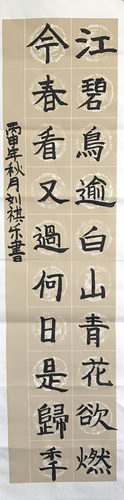 江碧鳥逾白山青花欲燃
今春看又過何日是歸季
丙申年秋月刘祺乐書